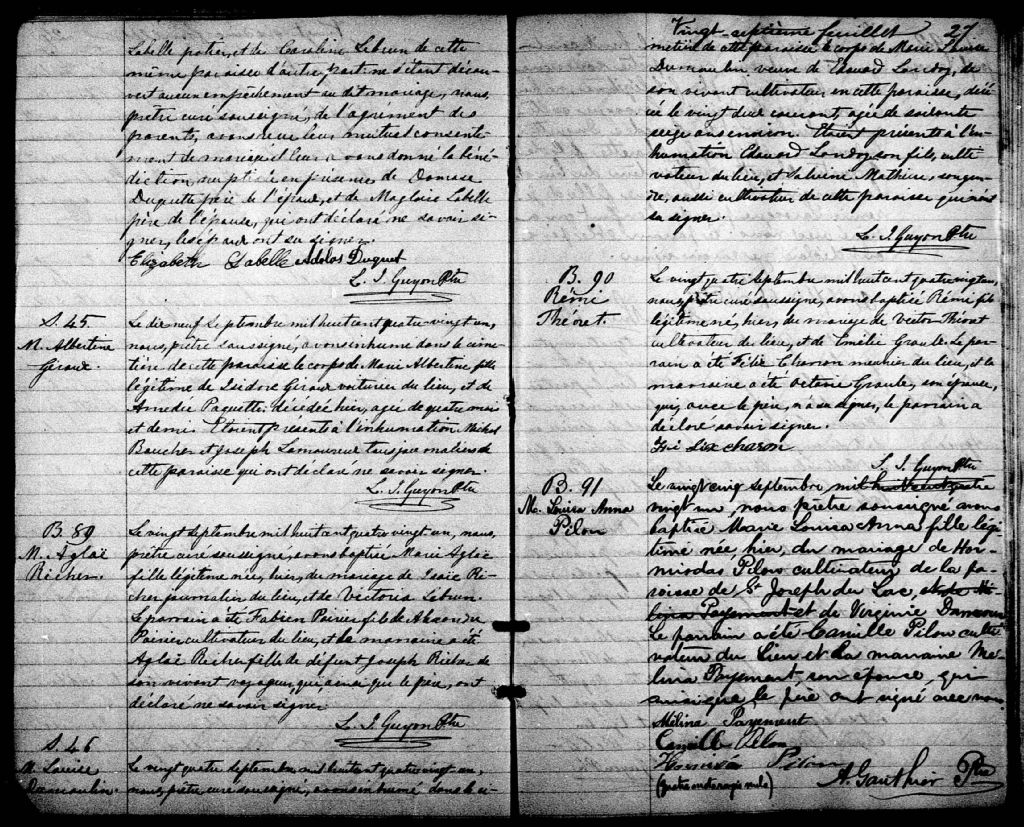 Labelle potier, et de Caroline Lebrun de cette
même paroisse d'autre part, ne s'étant décou-
vert aucun empêchement au dit mariage, nous,
prêtre curé soussigné, de l'agrément des
parents, avons reçu leur mutuel consente-
ment de mariage et leur avons donné la béné-
diction nuptiale en présence de Damase
Duquette père de l'époux, et de Magloire Labelle
père de l'épouse, qui ont déclaré ne savoir si-
gner, les époux ont su signer.
Elizabeth Labelle Adolas Duquet
L. I. Guyon Ptre
S. 45.
M. Albertine
Giroux.
Le dix neuf Septembre mil huit cent quatre-vingt un,
nous, prêtre soussigné, avons inhumé dans le cime-
tière de cette paroisse le corps de Marie Albertine, fille
légitime de Isidore Giroux voiturier du lieu, et de
Amedée Paquette. décédée hier, agée de quatre mois
et demi. Etoient présents à l'inhumation Michel
Boucher et Joseph Lamoureux tous journaliers de
cette paroisse qui ont déclaré ne savoir signer.
L. I. Guyon Ptre
B. 89
M. Aglaë
Richer.
Le vingt Septembre mil huit cent quatre vingt un, nous,
prêtre curé soussigné, avons baptisé Marie Aglaë
fille légitime née, hier, du mariage de Isaïe Ri-
cher journalier du lieu, et de Victoria Lebrun.
Le parrain a été Fabien Poirier fils de Alexandre
Poirier cultivateur du lieu, et la marraine a été
Aglaë Richer fille de défunt Joseph Richer de
son vivant voyageur, qui, ainsi que le père, ont
déclaré ne savoir signer.
L. I. Guyon Ptre
S. 46
M. Louise
Damoulin.
Le vingt quatre septembre, mil huit cent quatre vingt un,
nous, prêtre, curé soussigné, avons inhumé dans le ci-
Vingt septième feuillet 27
metière de cette paroisse le corps de Marie Louise
Damoulin, veuve de Edouard Landry, de
son vivant cultivateur, en cette paroisse, décé-
dée le vingt deux courant, agée de soixante
seize ans environ. Etoient présents à l'in-
humation Edouard Landry, son fils, culti-
vateur du lieu, et Sabrine Mathieu, son gen-
dre, aussi cultivateur de cette paroisse qui n'ont
su signer.
L. I. Guyon Ptre
B. 90
Rémi
Théoret.
Le vingt quatre Septembre mil huit cent quatre vingt un,
nous, prêtre curé soussigné, avons baptisé Rémi fils
légitime né, hier, du mariage de Victor Théoret
cultivateur du lieu, et de Emélie Groulx. Le par-
rain a été Félix Charron meunier du lieu, et la
marraine a été Octavie Groulx, son épouse,
qui, avec le père, n'a su signer, le parrain a
déclaré savoir signer.
Féli Lix charon
L. I. Guyon Ptre
B. 91
M. Louisa Anna
Pilon
Le vingt cinq septembre mil huit cent quatre
vingt un nous prêtre soussigné avons
baptisé Marie Louisa Anna fille légi-
time née, hier, du mariage de Hor-
misdas Pilon cultivateur de la pa-
roisse de St Joseph du Lac, et de Mé-
lina Payement et de Virginie
Le parrain a été Camille Pilon culti-
vateur du Lieu et la marraine Mé-
lina Payement, son épouse, qui
ainsi que le père ont signé avec nous
Mélina Payement
Camille Pilon
Pilon
(quatre mots rayés nuls)
A. Gauthier Ptre